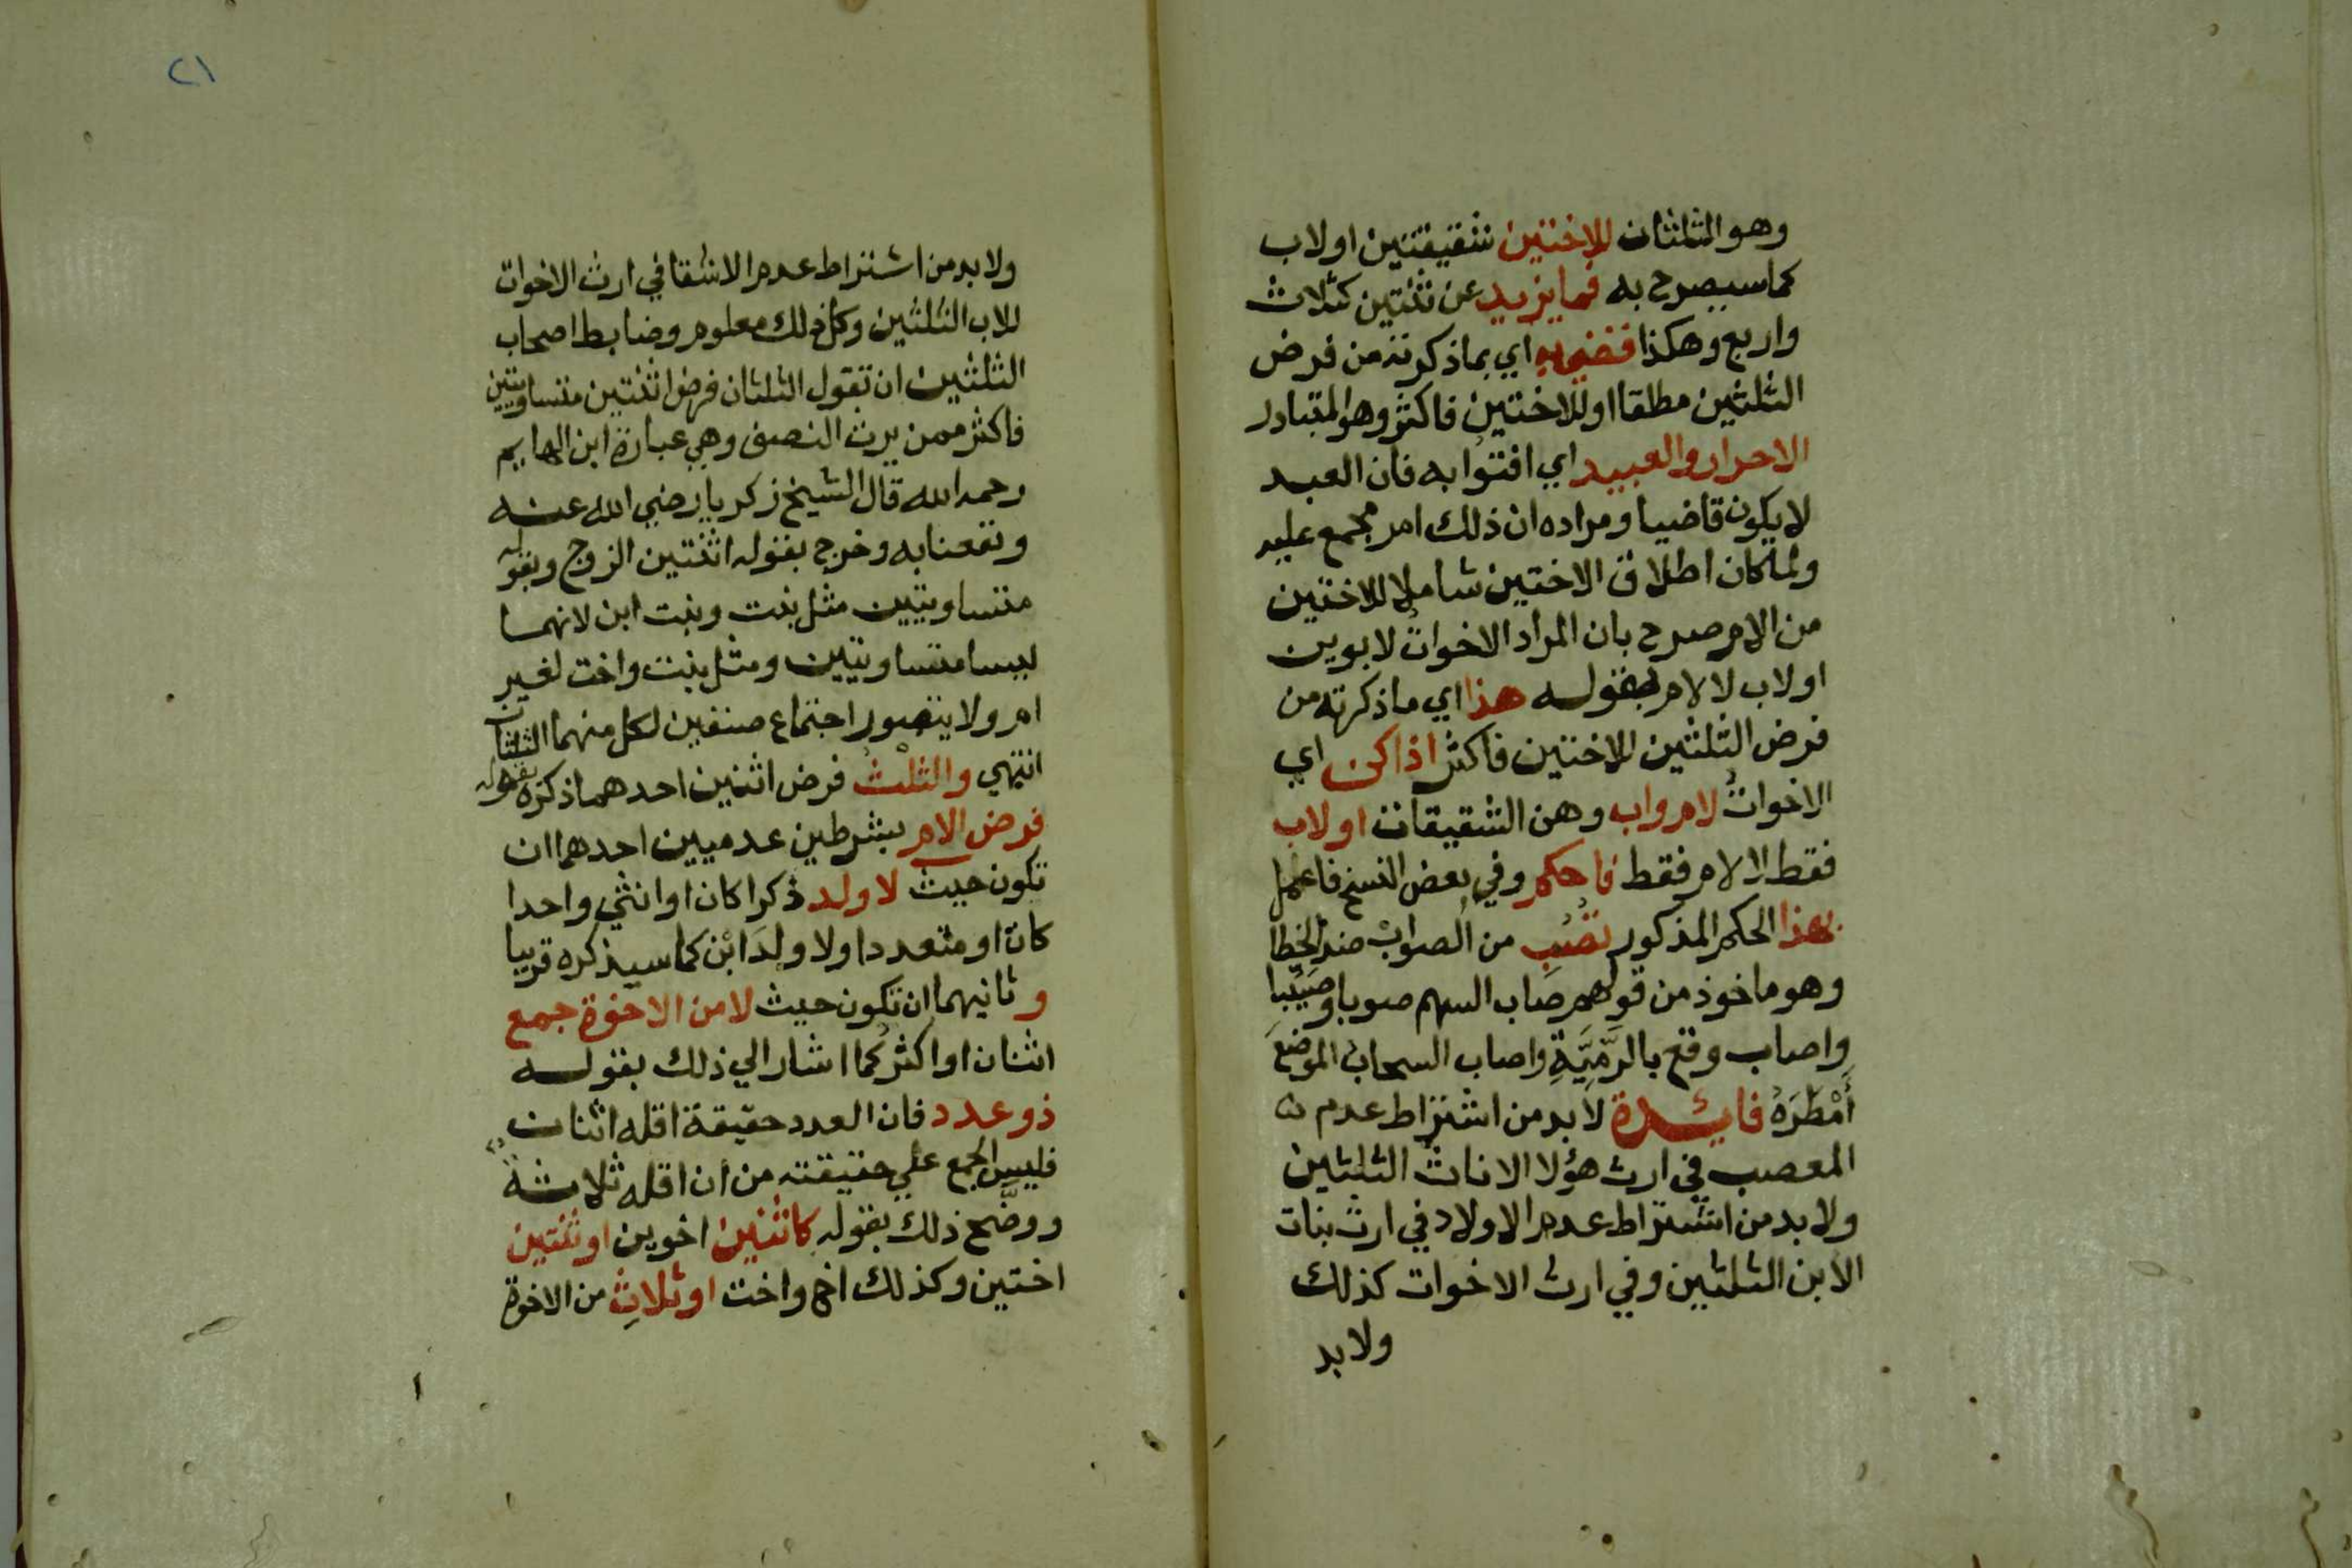 وهو الثلثان للاختين شقيقتين اولاب
كما سيصرح به فما يزيد عن ثنتين كثلاث
واربع وهكذا قضي به اي بما ذكرته من فرض
الثلثين مطلقا او للاختين فاكثر وهو المتبادر
الاحرار والعبيد اي افتوا به فان العبد
لا يكون قاضيا ومراده ان ذلك امر مجمع عليه
ولما كان اطلاق الاختين شاملا للاختين
من الام صرح بان المراد الاخوات لابوين
اولاب لا لام بقوله هذا اي ما ذكرته من
فرض الثلثين للاختين فاكثر اذا كن اي
الاخوات لام واب وهن الشقيقات اولاب
فقط لا لام فقط فاحكم وفي بعض النسخ فاعمل
بهذا الحكم المذكور تُصِب من الصواب ضد الخطا
وهو ماخوذ من قولهم صاب السهم صوبا وصَيْبا
واصاب وقع بالرَّمِيَّةِ واصاب السحاب الموضعَ
أَمْطَرَهُ فايدة لابد من اشتراط عدم
المعصب في ارث هؤلا الاناث الثلثين
ولابد من اشتراط عدم الاولاد في ارث بنات
الابن الثلثين وفي ارث الاخوات كذلك
ولابد
٢١
ولابد من اشتراط عدم الاشقا في ارث الاخوات
للاب الثلثين وكل ذلك معلوم وضابط اصحاب
الثلثين ان تقول الثلثان فرض اثنتين متساويتين
فاكثر ممن يرث النصف وهي عبارة ابن الهايم
رحمه الله قال الشيخ زكريا رضي الله عنه
ونفعنا به وخرج بقوله اثنتين الزوج وبقوله
متساويتين مثل بنت وبنت ابن لانهما
ليسا متساويتين ومثل بنت واخت لغير
ام ولا يتصور اجتماع صنفين لكل منهما الثلثان
انتهي والثلث فرض اثنين احدهما ذكره بقوله
فرض الام بشرطين عدميين احدهما ان
تكون حيث لا ولد ذكرا كان او انثي واحدا
كان او متعددا ولا ولدَ ابن كما سيذكره قريبا
وثانيهما ان تكون حيث لا من الاخوة جمع
اثنان او اكثر كما اشار الي ذلك بقوله
ذو عدد فان العدد حقيقة اقله اثنان
فليس الجمع علي حقيقته من ان اقله ثلاثة
ووضَّح ذلك بقوله كاثنين اخوين او ثنتين
اختين وكذلك اخ واخت او ثلاثِ من الاخوة